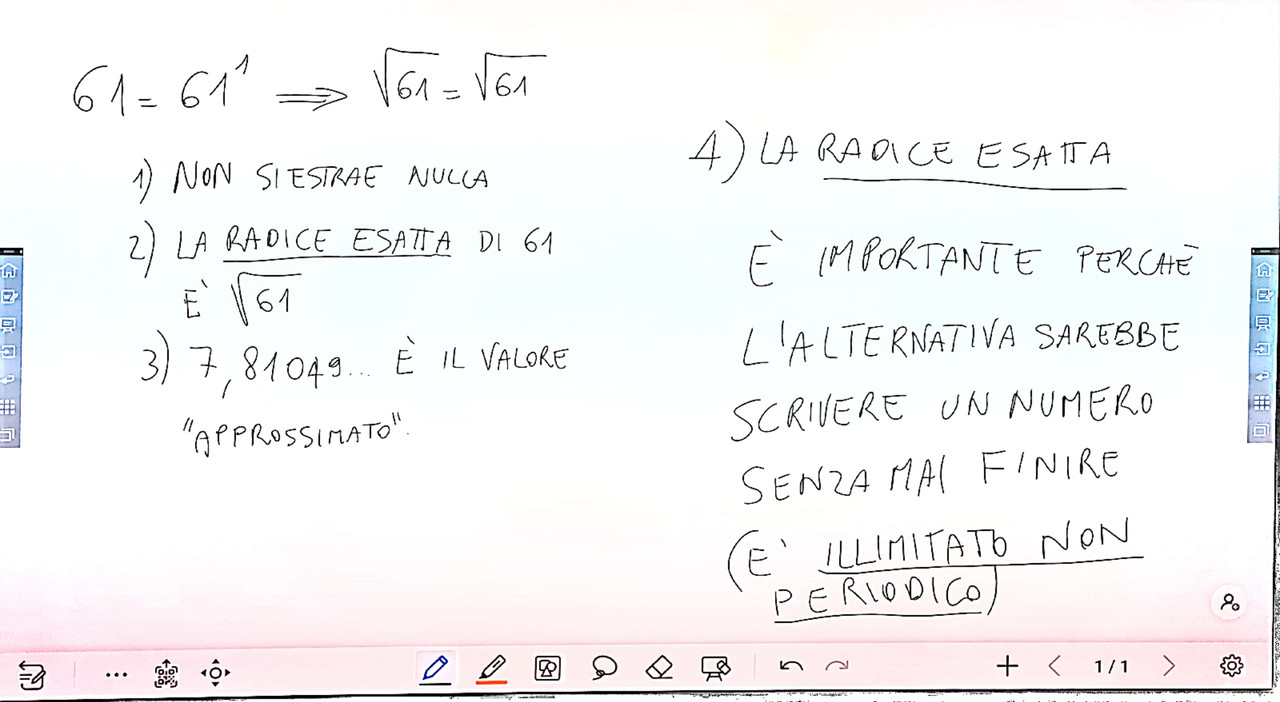 61 = 61¹ ⟹ √61 = √61
1) NON SI ESTRAE NULLA
2) LA RADICE ESATTA DI 61
E' √61
3) 7,81049... È IL VALORE
"APPROSSIMATO".
4) LA RADICE ESATTA
È IMPORTANTE PERCHÈ
L'ALTERNATIVA SAREBBE
SCRIVERE UN NUMERO
SENZA MAI FINIRE
(E' ILLIMITATO NON
PERIODICO)
1/1